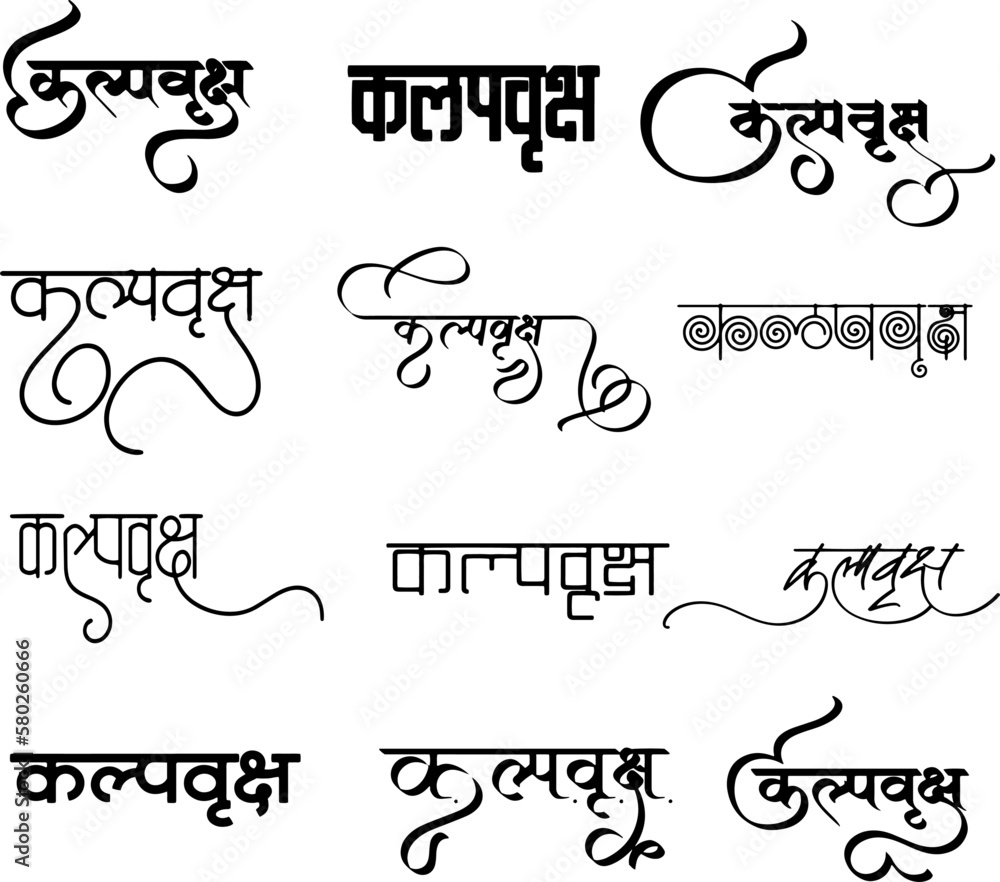 कल्पवृक्ष कल्पवृक्ष कल्पवृक्ष
कल्पवृक्ष कल्पवृक्ष कल्पवृक्ष
कल्पवृक्ष कल्पवृक्ष कल्पवृक्ष
कल्पवृक्ष कल्पवृक्ष कल्पवृक्ष
Adobe Stock | #580260666